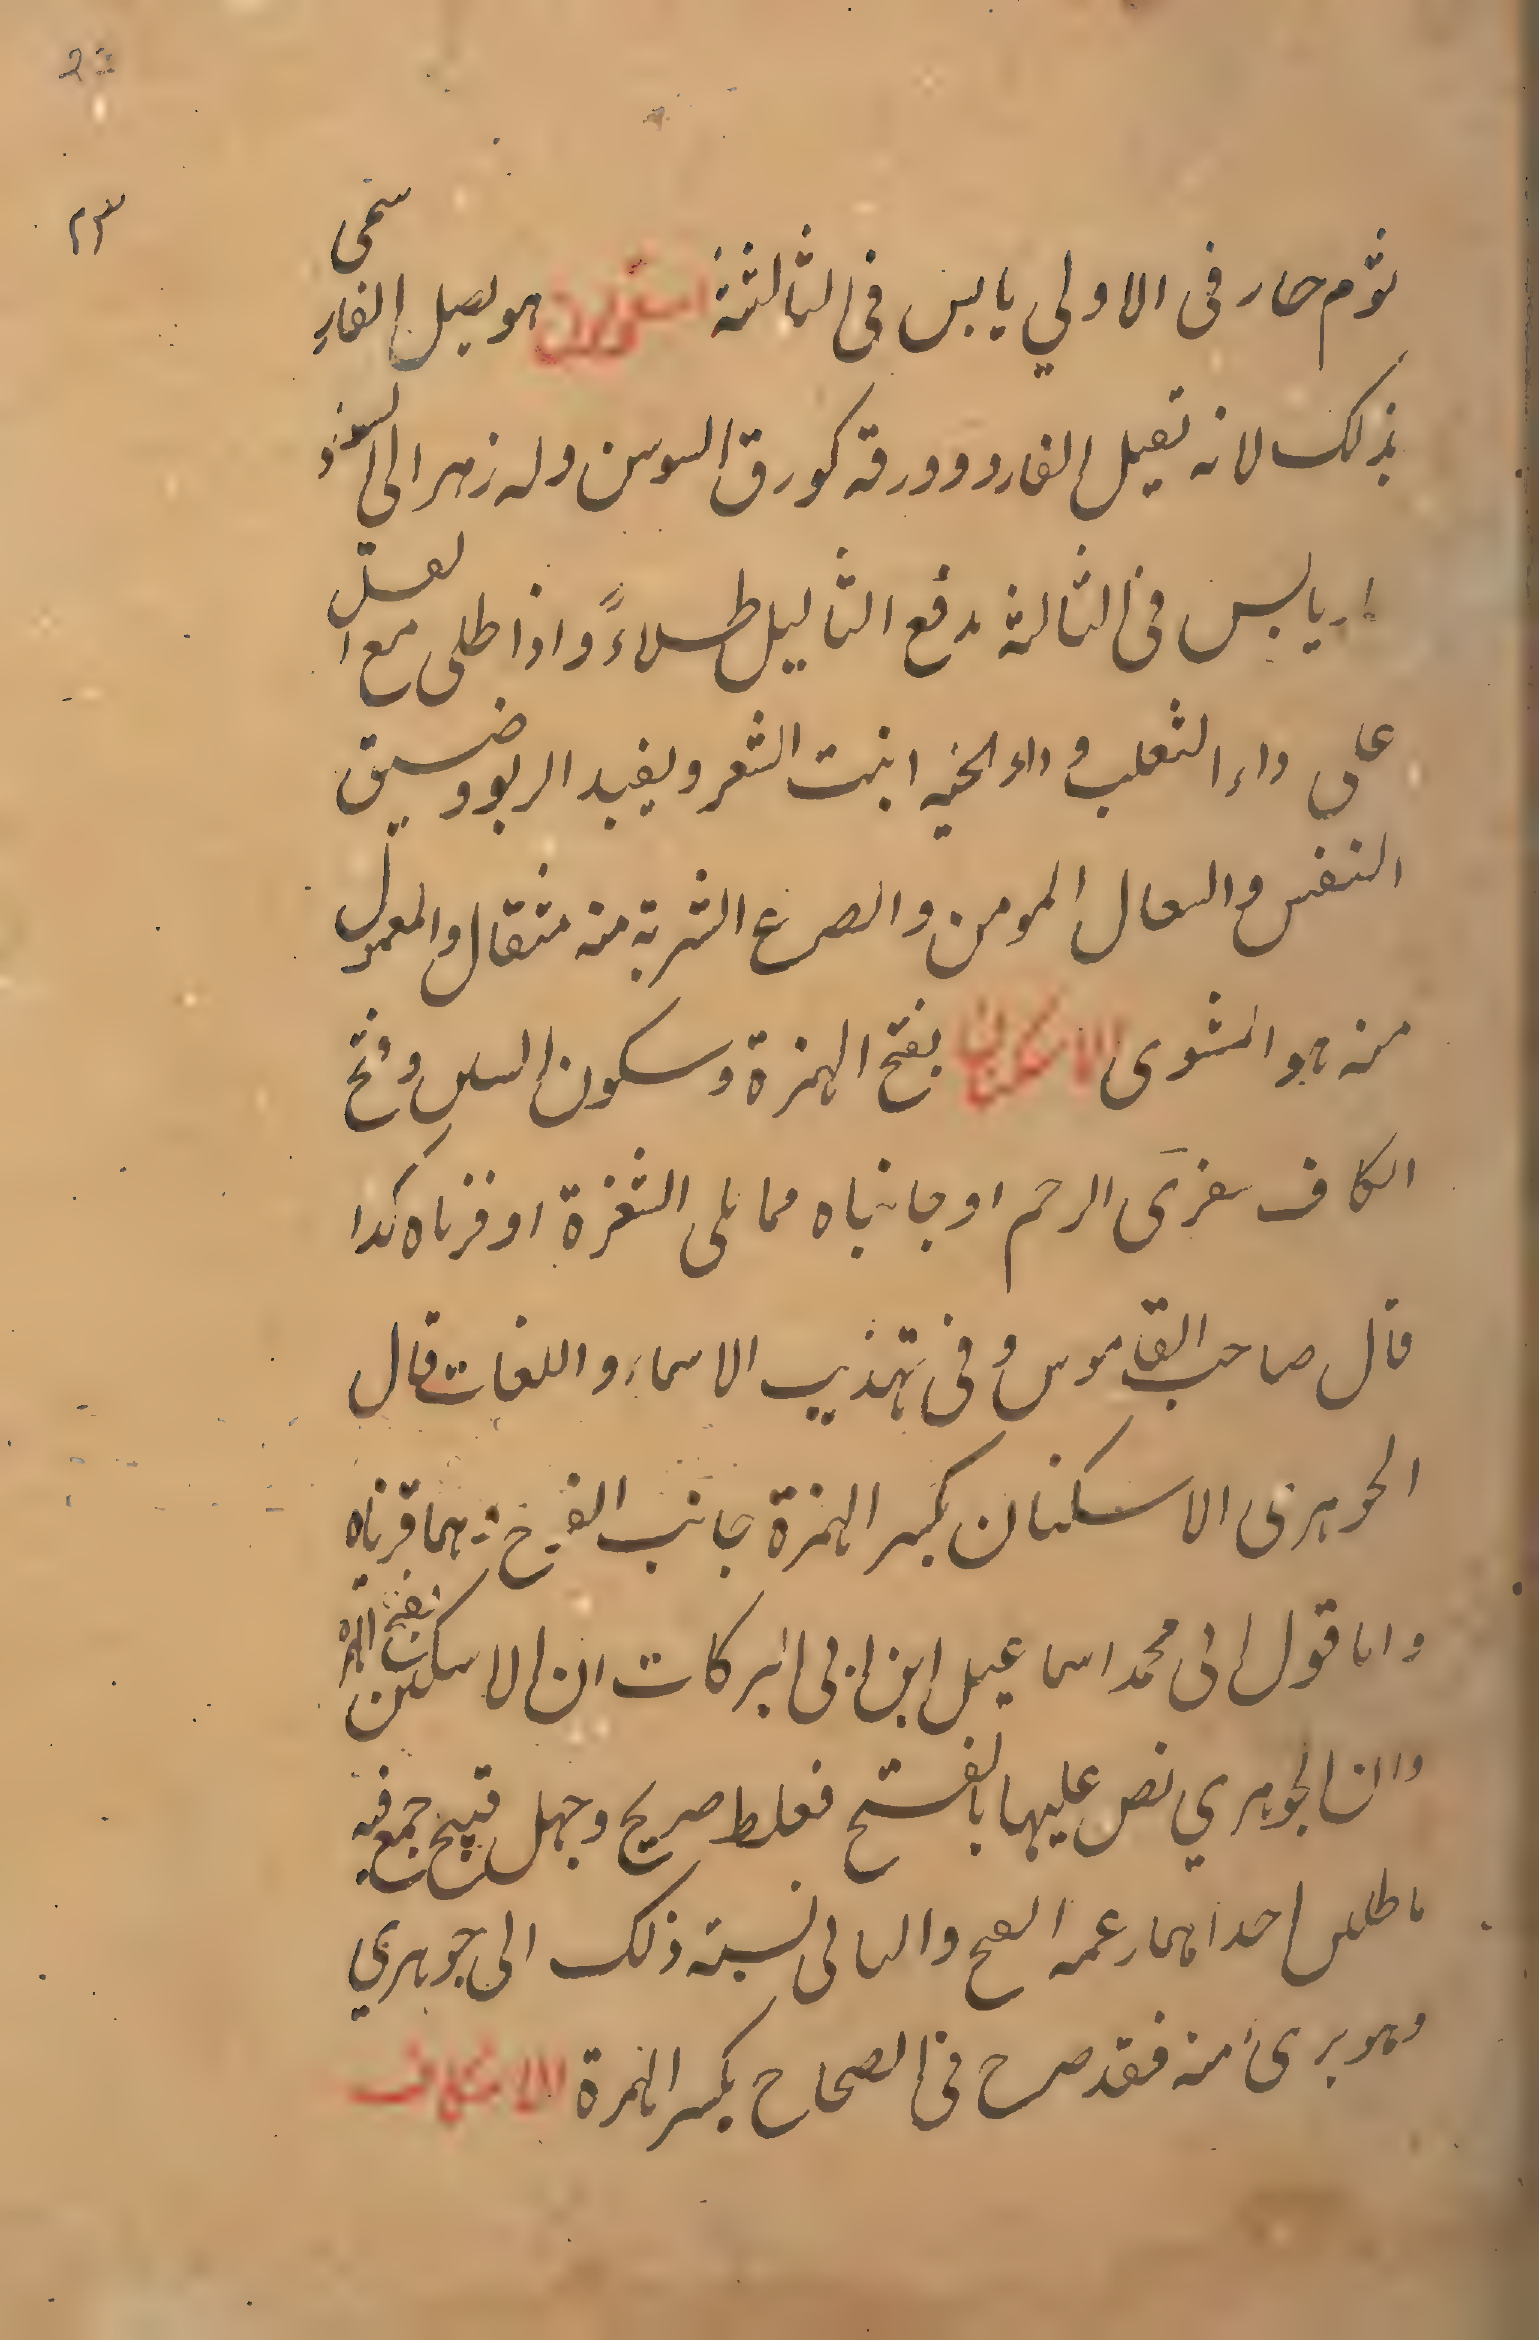 ٢٣
ثوم حار فى الاولي يابس فى الثالثة اسقيل هو بصل الفار سمى
بذلك لانه تقيل الفار وورقه كورق السوسن وله زهر الى السواد
حار يابس فى الثالثة مدفع الثاليل طلاءً واذا طلى مع العسل
على داء الثعلب وداء الحيه انبت الشعر ويفيد الربو وضيق
النفس والسعال المومن والصرع الشربة منه مثقال والمعمول
منه هو المشوى الاسكتان بفتح الهمزة وسكون السين وفتح
الكاف شفرى الرحم او جانباه مما يلى الشفرة او قرناه كذا
قال صاحب القاموس وفى تهذيب الاسماء واللغات قال
الجوهرى الاسكتان بكسر الهمزة جانب الفرج وهما قرناه
واما قول ابى محمد اسماعيل ابن ابى البركات ان الاسكتين بفتح الهمزة
وان الجوهري نص عليها بالفتح فغلط صريح وجهل قبيح جمع فيه
باطلين احداهما زعمه الفتح والثانى نسبة ذلك الى جوهري
وهو برىء منه فقد صرح فى الصحاح بكسر الهمزة الاسكاف